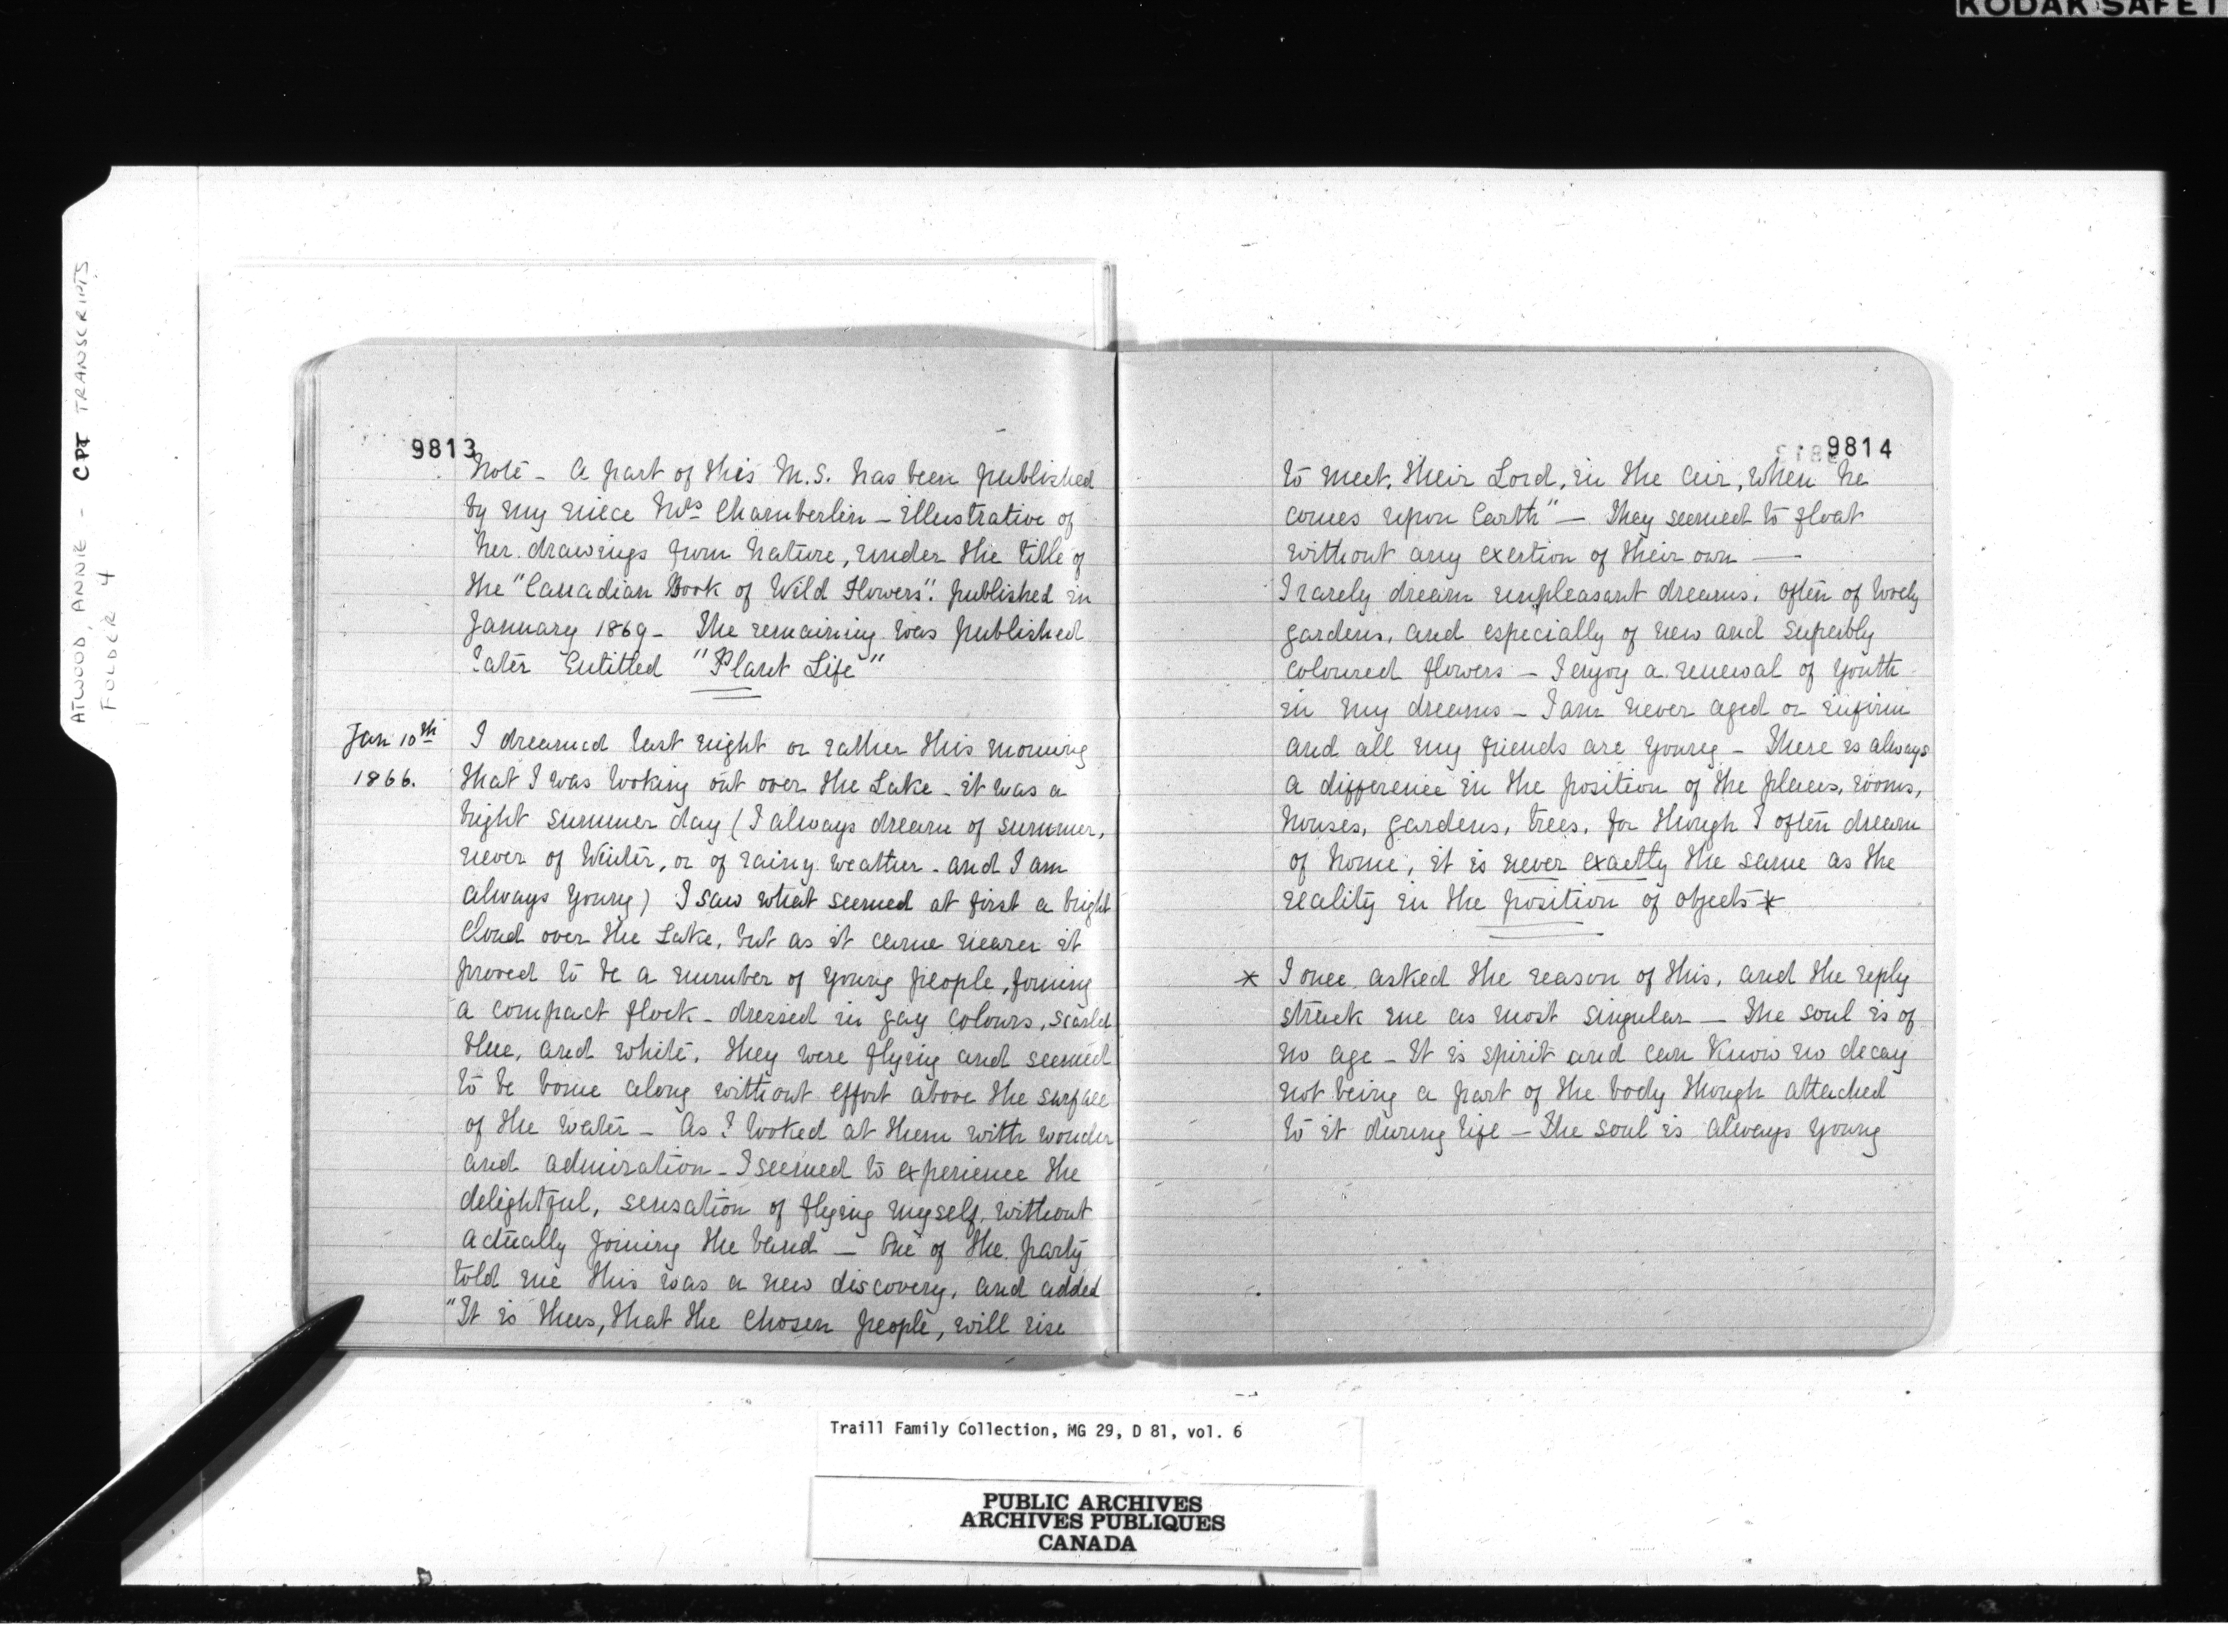 KODAK SAFET
ATWOOD, ANNIE - CPT TRANSCRIPTS
FOLDER 4
9813
Note - A part of this M.S. has been published
by my niece Mrs Chamberlin - illustrative of
her drawings from Nature, under the title of
the "Canadian Book of Wild Flowers". published in
January 1869 - The remaining was published
later Entitled "Plant Life"
Jan 10th
1866.
I dreamed last night or rather this morning
that I was looking out over the Lake - it was a
bright summer day (I always dream of summer,
never of Winter, or of rainy weather - and I am
always young) I saw what seemed at first a bright
cloud over the Lake, but as it came nearer it
proved to be a number of young people, forming
a compact flock - dressed in gay colours, scarlet
blue, and white, they were flying and seemed
to be borne along without effort above the surface
of the water - As I looked at them with wonder
and admiration - I seemed to experience the
delightful, sensation of flying myself, without
actually joining the band - One of the party
told me this was a new discovery, and added
"It is thus, that the chosen people, will rise
9814
to meet, their Lord, in the air, when he
comes upon Earth" - They seemed to float
without any exertion of their own -
I rarely dream unpleasant dreams, often of lovely
gardens, and especially of new and superbly
coloured flowers - I enjoy a renewal of youth
in my dreams - I am never aged or infirm
and all my friends are young - There is always
a difference in the position of the places, rooms,
houses, gardens, trees, for though I often dream
of home, it is never exactly the same as the
reality in the position of objects *
* I once asked the reason of this, and the reply
struck me as most singular - The soul is of
no age - It is spirit and can know no decay
not being a part of the body though attached
to it during life - The soul is always young
Traill Family Collection, MG 29, D 81, vol. 6
PUBLIC ARCHIVES
ARCHIVES PUBLIQUES
CANADA